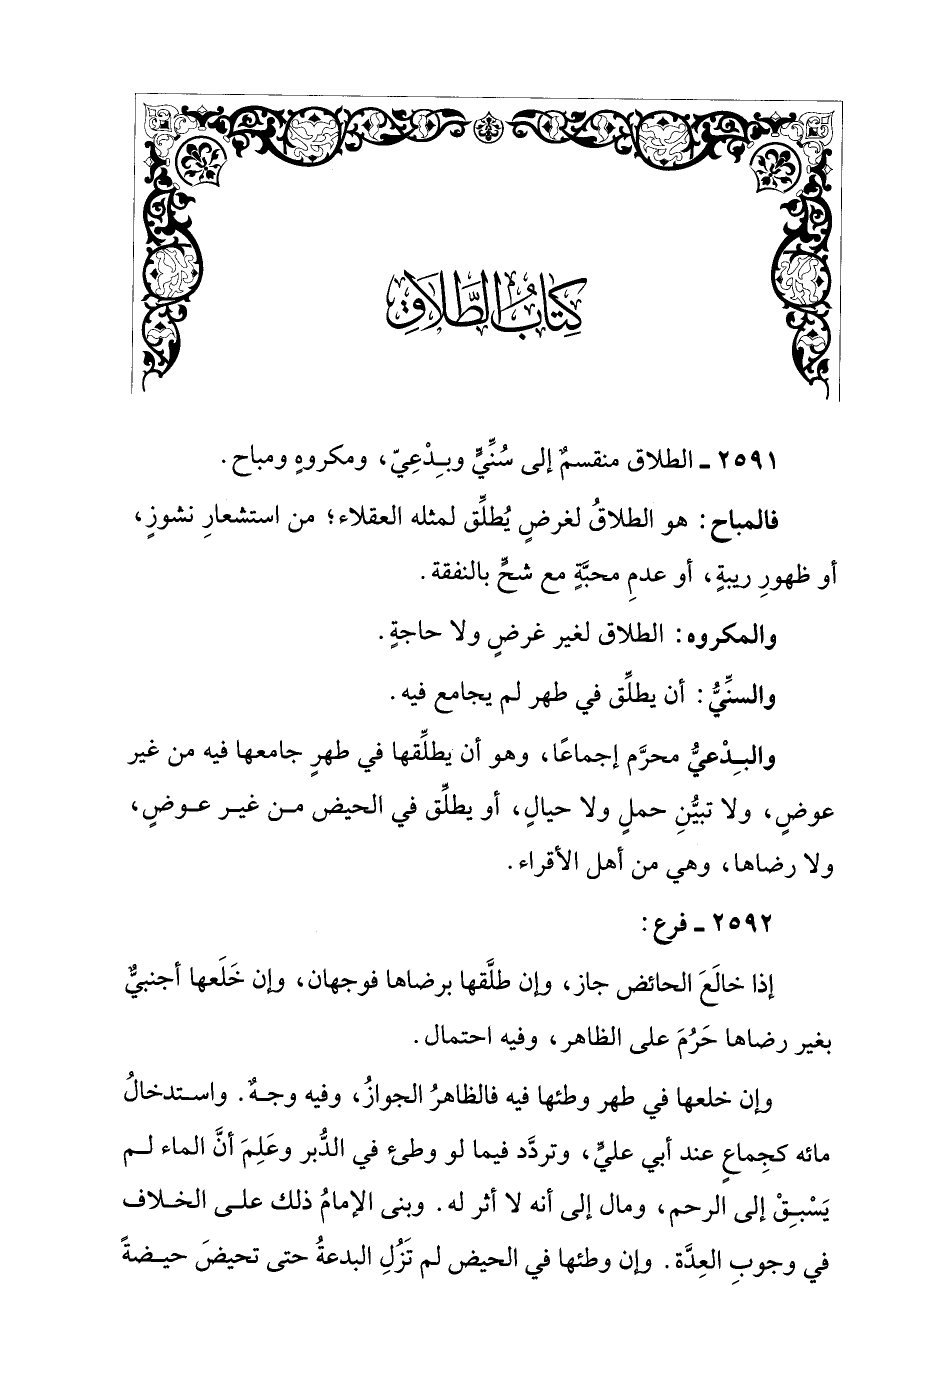 كِتَابُ الطَّلَاقِ
٢٥٩١ ـ الطلاق منقسمٌ إلى سُنِّيٍّ وبِدْعِيّ، ومكروهٍ ومباح.
فالمباح: هو الطلاقُ لغرضٍ يُطلِّق لمثله العقلاء؛ من استشعارِ نشوزٍ،
أو ظهورِ ريبةٍ، أو عدمِ محبَّةٍ مع شحٍّ بالنفقة.
والمكروه: الطلاق لغير غرضٍ ولا حاجةٍ.
والسنِّيُّ: أن يطلِّق في طهر لم يجامع فيه.
والبِدْعيُّ محرَّم إجماعًا، وهو أن يطلِّقها في طهرٍ جامعها فيه من غير
عوضٍ، ولا تبيُّنِ حملٍ ولا حيالٍ، أو يطلِّق في الحيض من غير عوضٍ،
ولا رضاها، وهي من أهل الأقراء.
٢٥٩٢ ـ فرع:
إذا خالَعَ الحائض جاز، وإن طلَّقها برضاها فوجهان، وإن خَلَعها أجنبيٌّ
بغير رضاها حَرُمَ على الظاهر، وفيه احتمال.
وإن خلعها في طهر وطئها فيه فالظاهرُ الجوازُ، وفيه وجهٌ. واستدخالُ
مائه كجِماعٍ عند أبي عليٍّ، وتردَّد فيما لو وطئ في الدُّبر وعَلِمَ أنَّ الماء لم
يَسْبِقْ إلى الرحم، ومال إلى أنه لا أثر له. وبنى الإمامُ ذلك على الخلاف
في وجوبِ العِدَّة. وإن وطئها في الحيض لم تَزُلِ البدعةُ حتى تحيضَ حيضةً